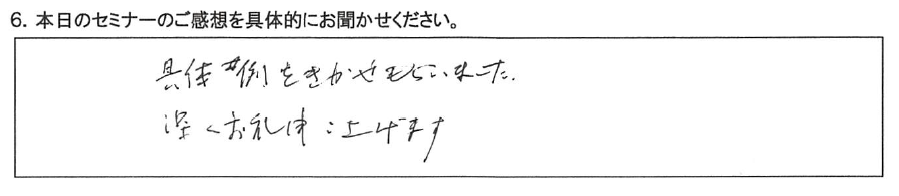 6. 本日のセミナーのご感想を具体的にお聞かせください。
具体事例をきかせもらいました.
深くお礼申し上げます